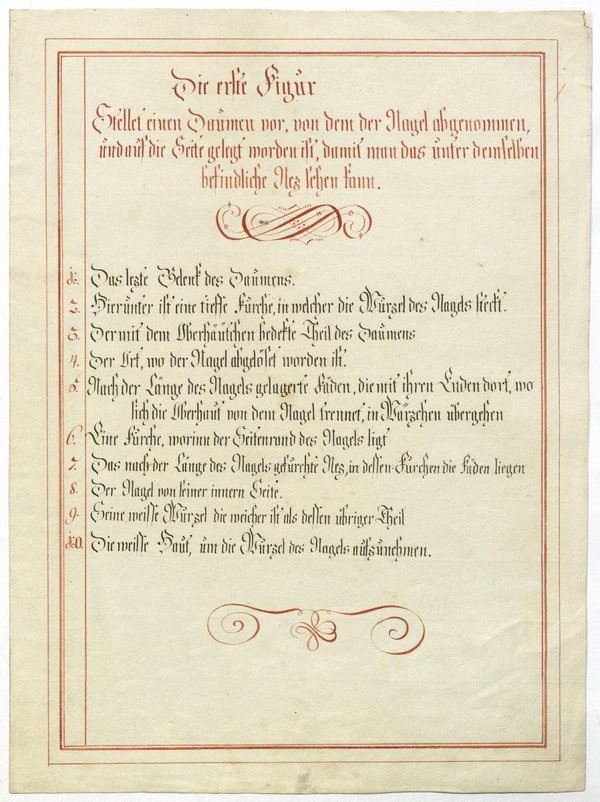 Die erste Figur
Stellet einen Daumen vor, von dem der Nagel abgenommen,
und auf die Seite gelegt worden ist, damit man das unter demselben
befindliche Nez sehen kann.
1. Das lezte Gelenk des Daumens.
2. Hierunter ist eine tieffe Furche, in welcher die Wurzel des Nagels steckt.
3. Der mit dem Oberhäutchen bedekte Theil des Daumens
4. Der Ort, wo der Nagel abgelöset worden ist.
5. Nach der Länge des Nagels gelagerte Fäden, die mit ihren Enden dort, wo
sich die Oberhaut von dem Nagel trennet, in Wärzchen übergehen
6. Eine Furche, worinn der Seitenrand des Nagels ligt
7. Das nach der Länge des Nagels gefurchte Nez, in dessen Furchen die Fäden liegen
8. Der Nagel von seiner innern Seite.
9. Seine weisse Wurzel die weicher ist als dessen übriger Theil
10. Die weisse Haut, um die Wurzel des Nagels aufzunehmen.